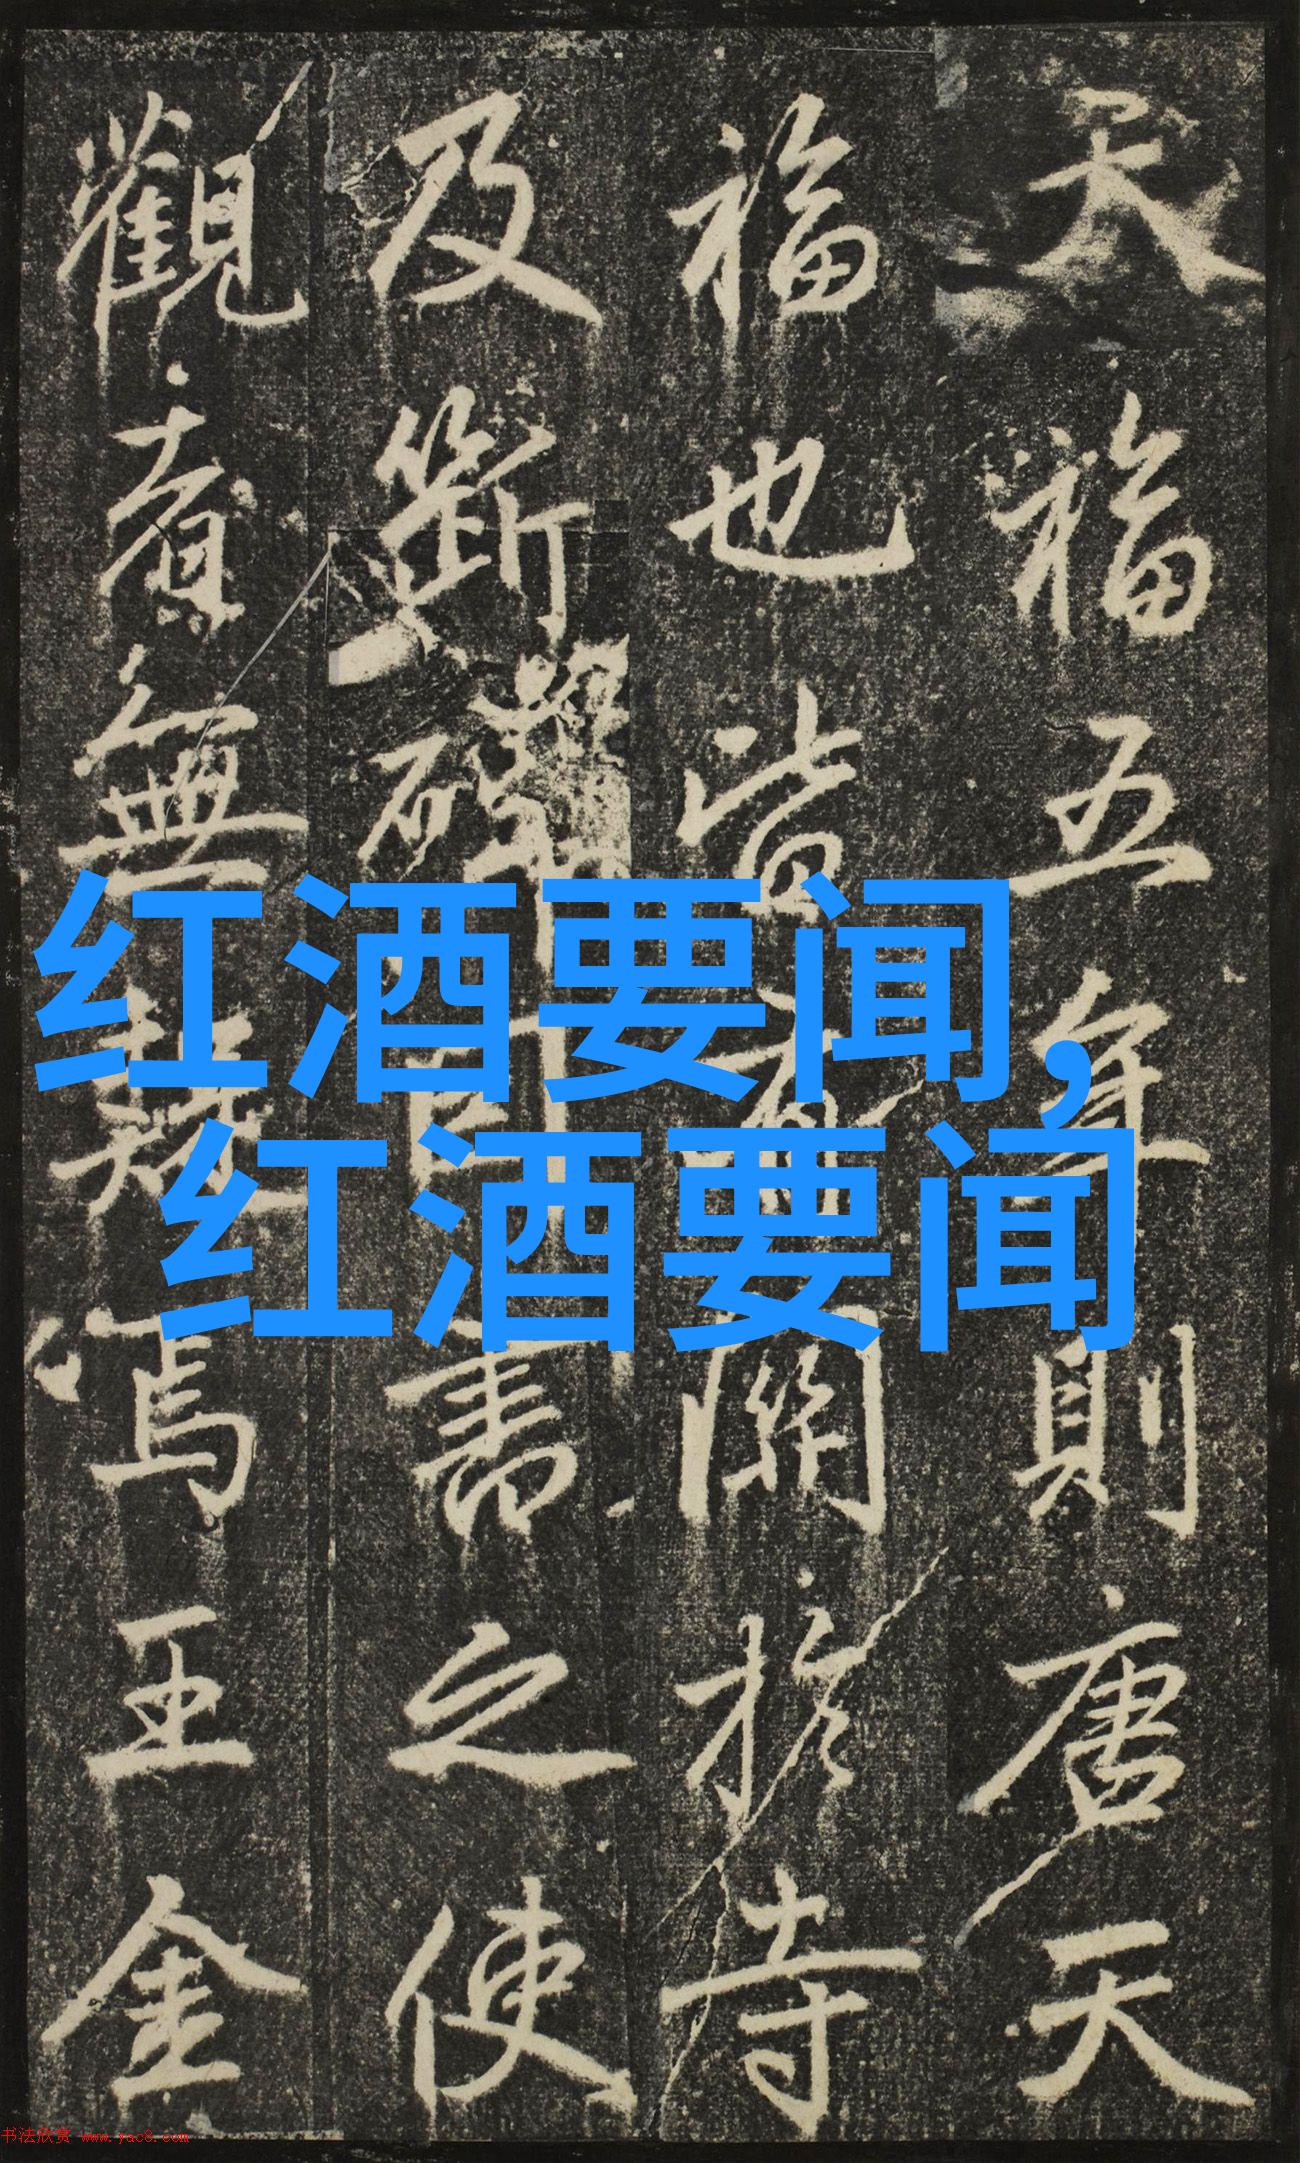 天福五年則唐天
福也有關於寺
及斷碑書之使
觀者無疑焉王金
红酒要闻,
红酒要闻
书法欣赏 www.yac8.com